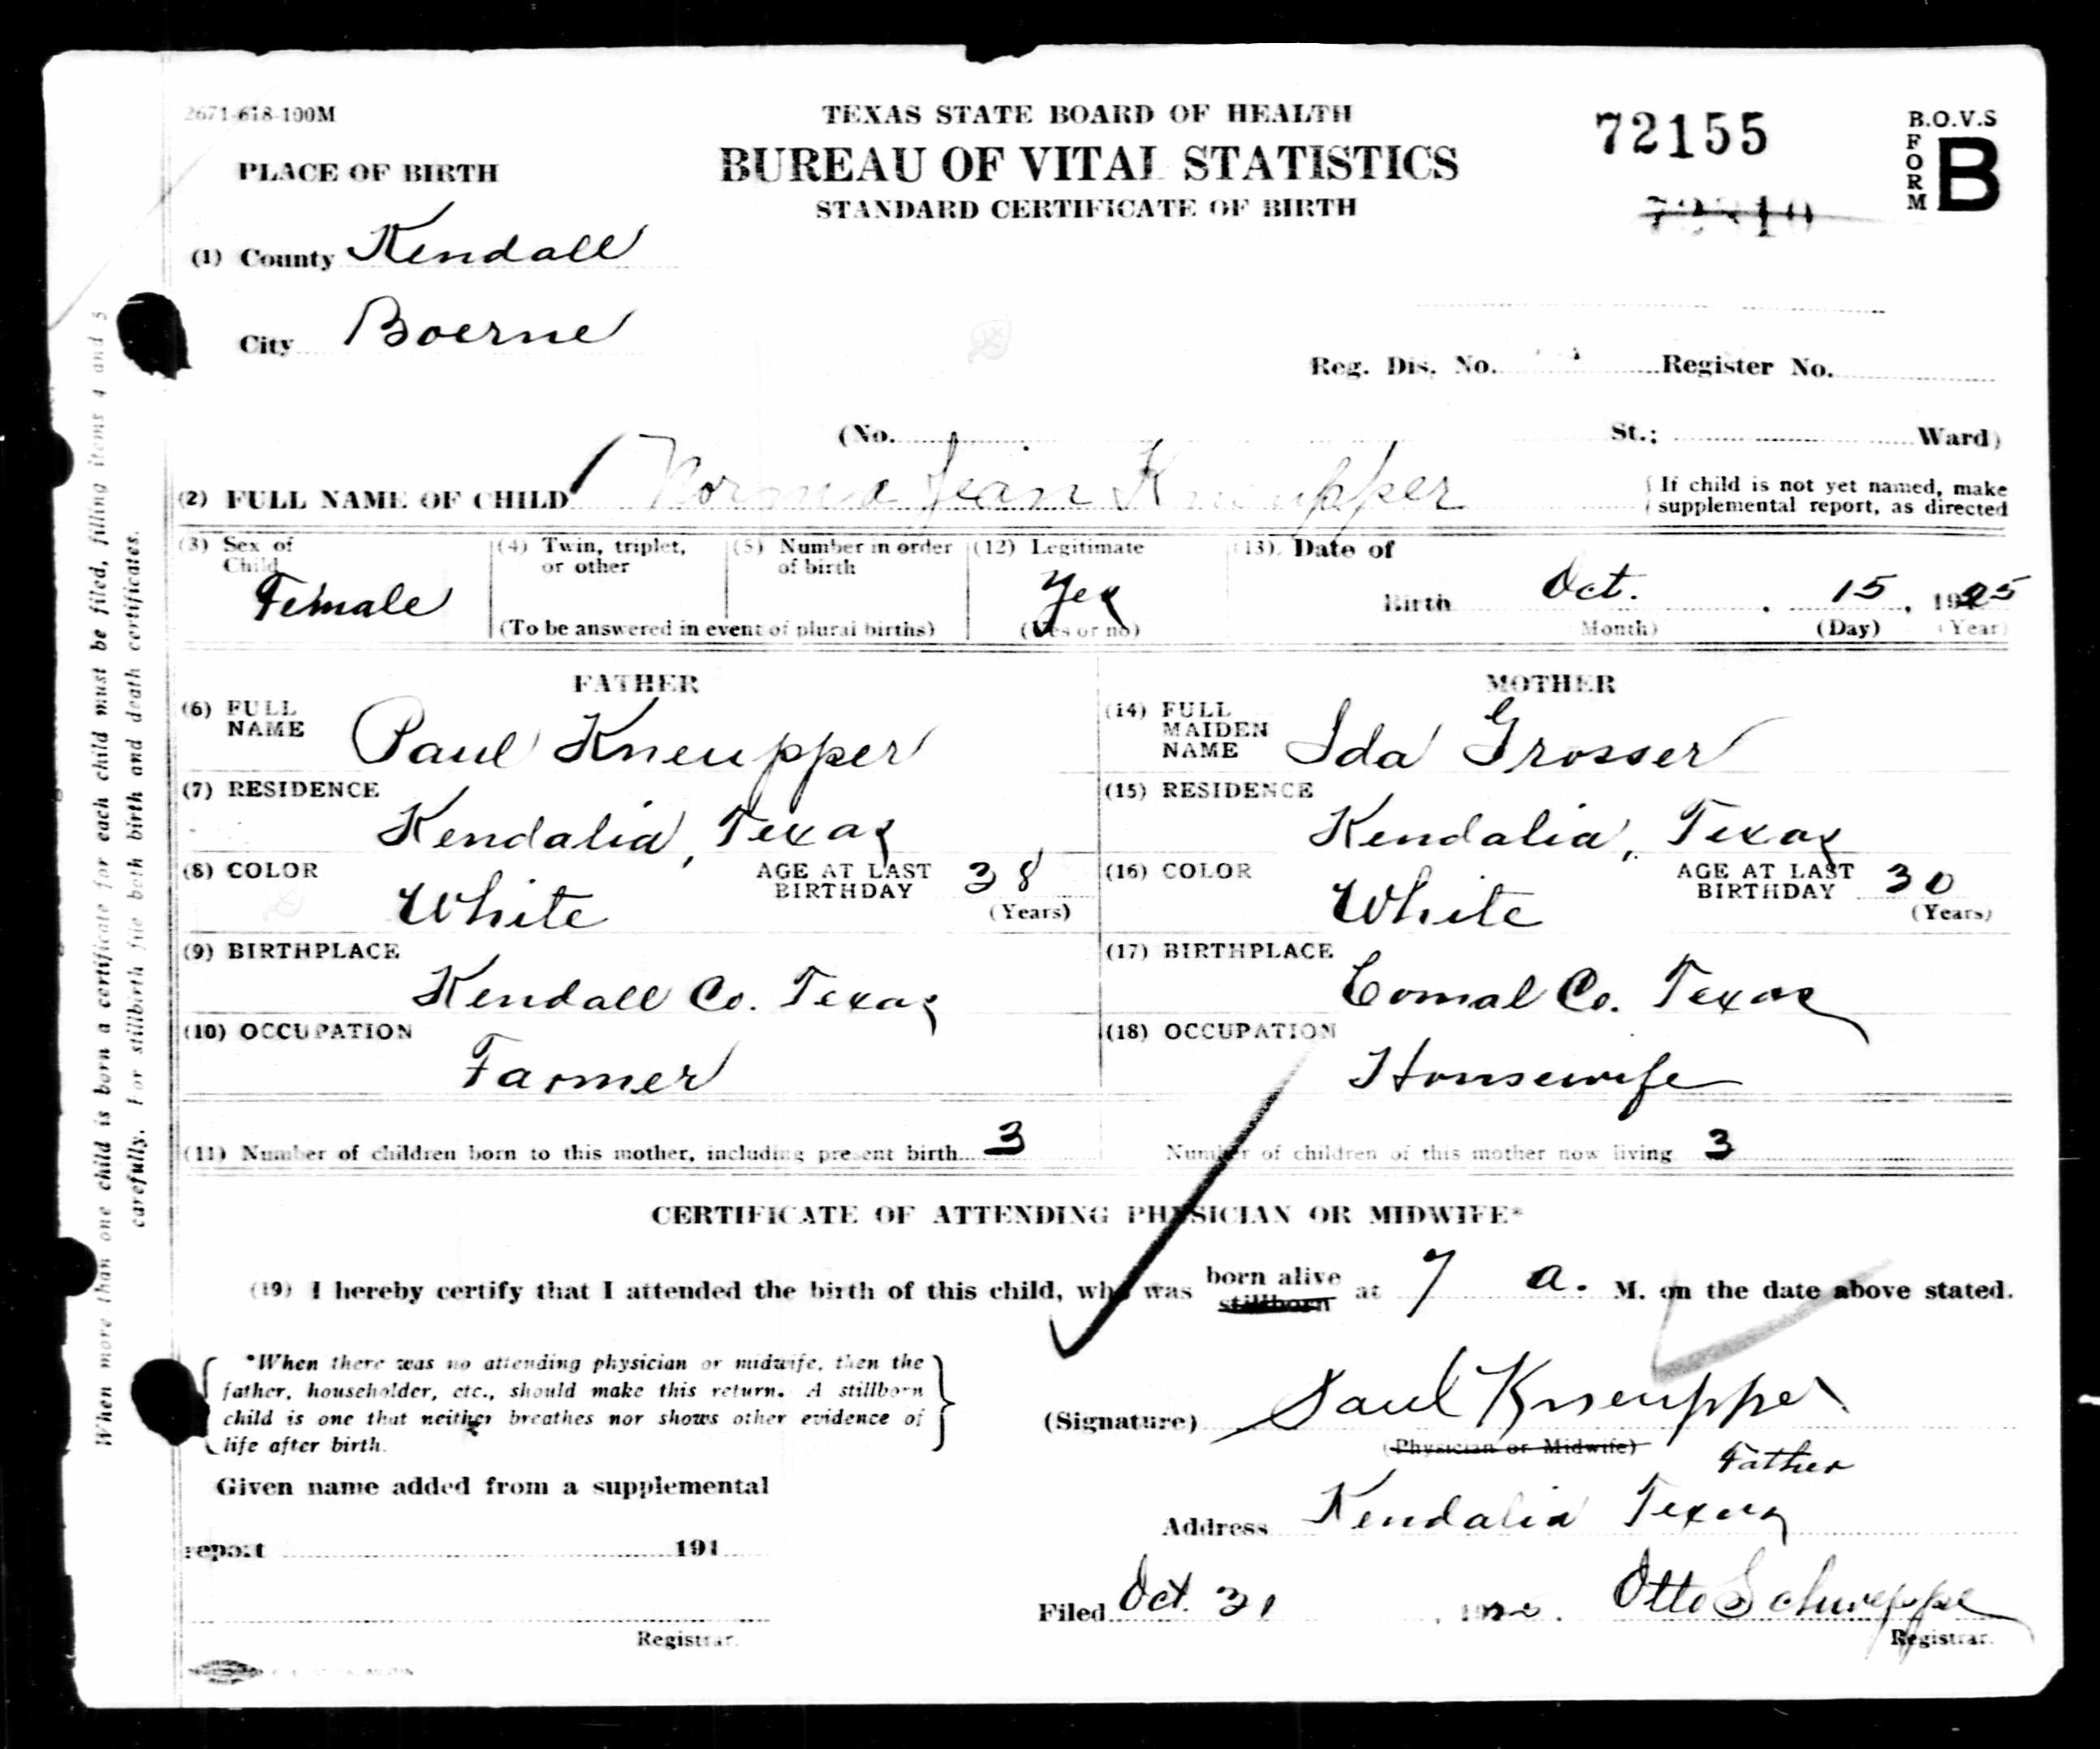 2671-618-100M
TEXAS STATE BOARD OF HEALTH
72155
B.O.V.S
FORM B
PLACE OF BIRTH
BUREAU OF VITAL STATISTICS
STANDARD CERTIFICATE OF BIRTH
(1) County Kendall
City Boerne
Reg. Dis. No. Register No.
(No. St.; Ward)
(2) FULL NAME OF CHILD Norma Jean Kneupper
If child is not yet named, make
supplemental report, as directed
(3) Sex of Child Female
(4) Twin, triplet, or other
(5) Number in order of birth
(To be answered in event of plural births)
(12) Legitimate Yes
(Yes or no)
(13) Date of
Birth Oct. 15, 1925
(Month) (Day) (Year)
FATHER
(6) FULL NAME Paul Kneupper
(7) RESIDENCE
Kendalia, Texas
(8) COLOR White AGE AT LAST BIRTHDAY 38
(Years)
(9) BIRTHPLACE
Kendall Co. Texas
(10) OCCUPATION
Farmer
MOTHER
(14) FULL MAIDEN NAME Ida Grosser
(15) RESIDENCE
Kendalia, Texas
(16) COLOR White AGE AT LAST BIRTHDAY 30
(Years)
(17) BIRTHPLACE
Comal Co. Texas
(18) OCCUPATION
Housewife
(11) Number of children born to this mother, including present birth 3 Number of children of this mother now living 3
CERTIFICATE OF ATTENDING PHYSICIAN OR MIDWIFE*
(19) I hereby certify that I attended the birth of this child, who was born alive stillborn at 7 a. M. on the date above stated.
*When there was no attending physician or midwife, then the
father, householder, etc., should make this return. A stillborn
child is one that neither breathes nor shows other evidence of
life after birth.
(Signature) Paul Kneupper
(Physician or Midwife)
Father
Given name added from a supplemental
report 191
Registrar.
Address Kendalia Texas
Filed Oct. 31, Otto Schweppe
Registrar.
When more than one child is born a certificate for each child must be filed, filling items 4 and 5
carefully. For stillbirth file both birth and death certificates.